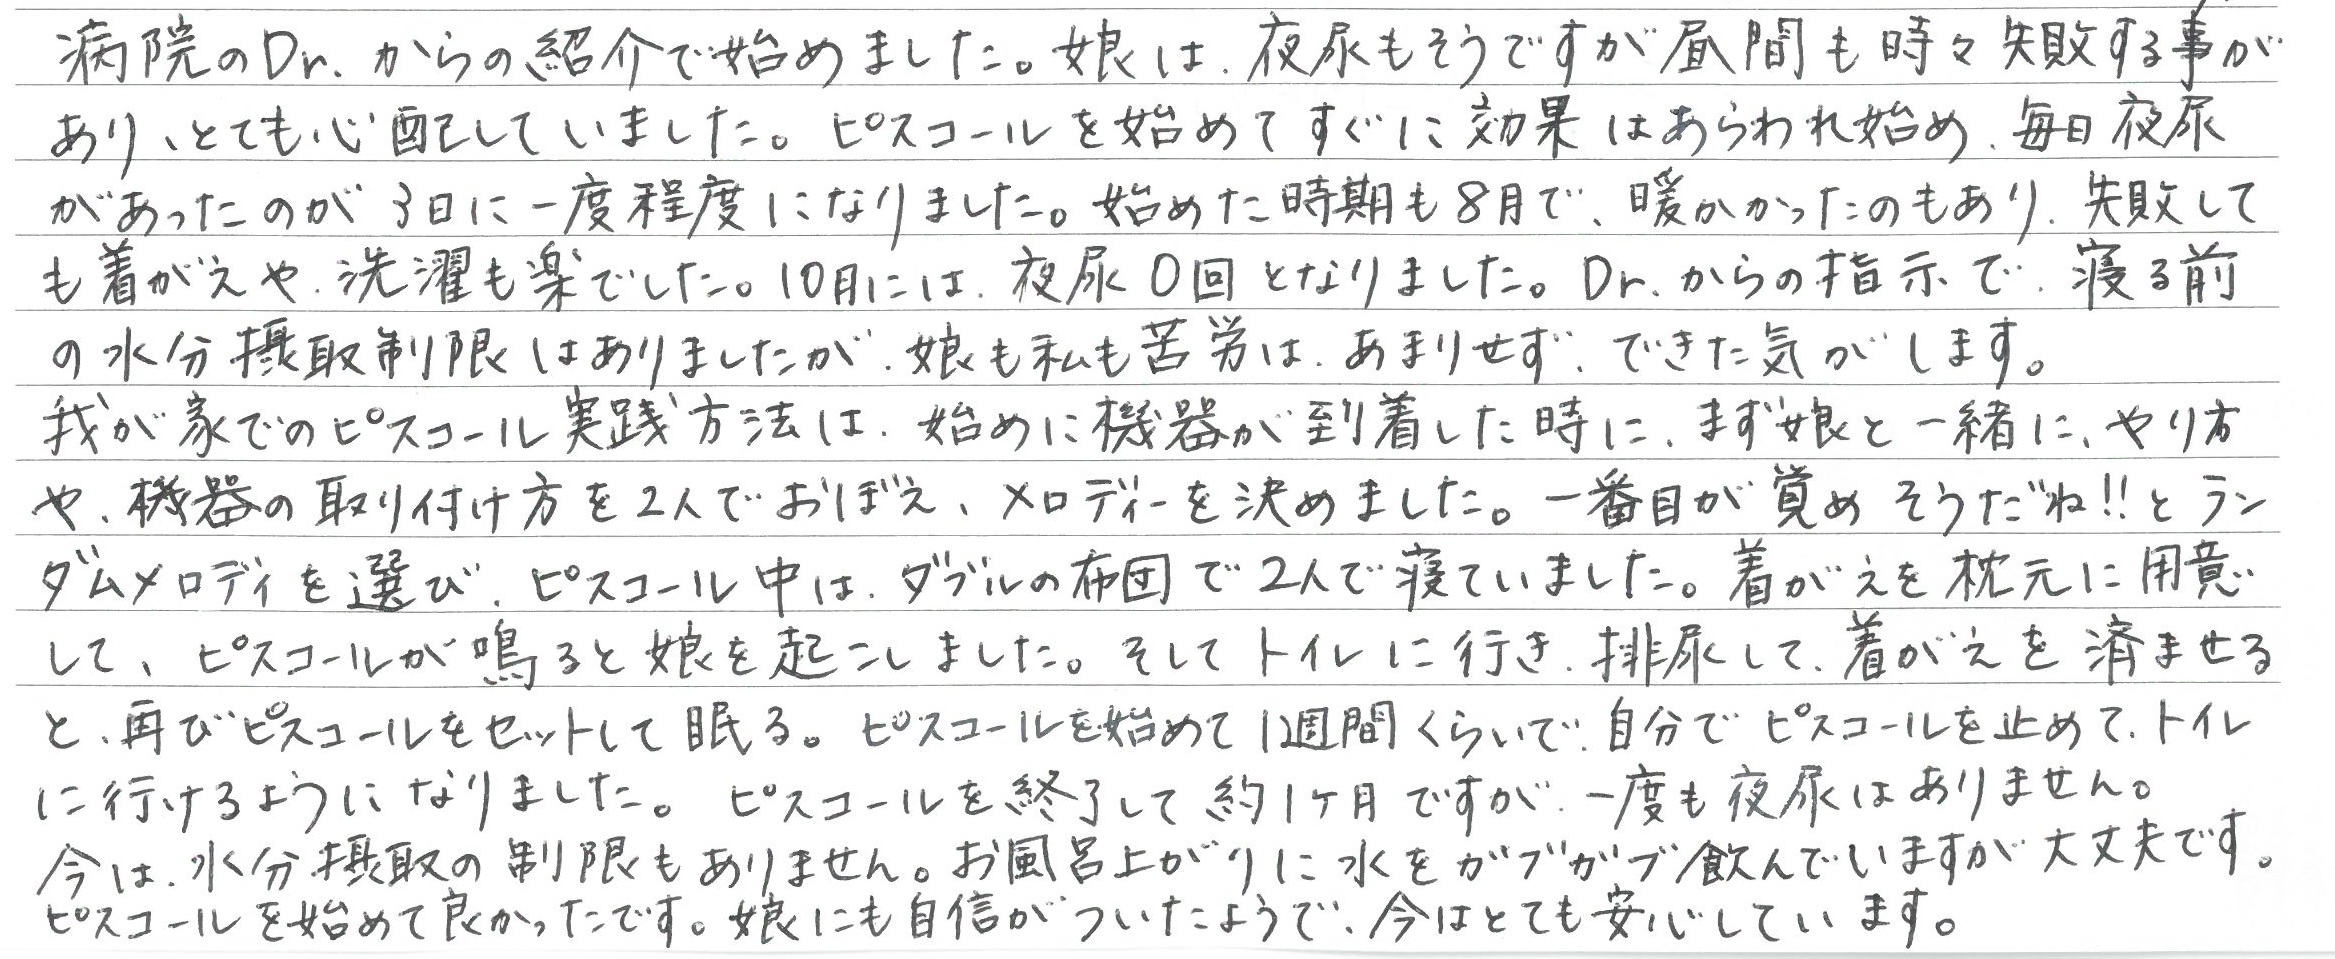 病院のDr.からの紹介で始めました。娘は、夜尿もそうですが昼間も時々失敗する事が
あり、とても心配していました。ピスコールを始めてすぐに効果はあらわれ始め、毎日夜尿
があったのが3日に一度程度になりました。始めた時期も8月で、暖かかったのもあり、失敗して
も着がえや、洗濯も楽でした。10月には、夜尿0回となりました。Dr.からの指示で、寝る前
の水分摂取制限はありましたが、娘も私も苦労は、あまりせず、できた気がします。
我が家でのピスコール実践方法は、始めに機器が到着した時に、まず娘と一緒に、やり方
や、機器の取り付け方を2人でおぼえ、メロディーを決めました。一番目が覚めそうだね!!とラン
ダムメロディを選び、ピスコール中は、ダブルの布団で2人で寝ていました。着がえを枕元に用意
して、ピスコールが鳴ると娘を起こしました。そしてトイレに行き、排尿して、着がえを済ませる
と、再びピスコールをセットして眠る。ピスコールを始めて1週間くらいで、自分でピスコールを止めて、トイレ
に行けるようになりました。ピスコールを終了して約1ヶ月ですが、一度も夜尿はありません。
今は、水分摂取の制限もありません。お風呂上がりに水をガブガブ飲んでいますが大丈夫です。
ピスコールを始めて良かったです。娘にも自信がついたようで、今はとても安心しています。